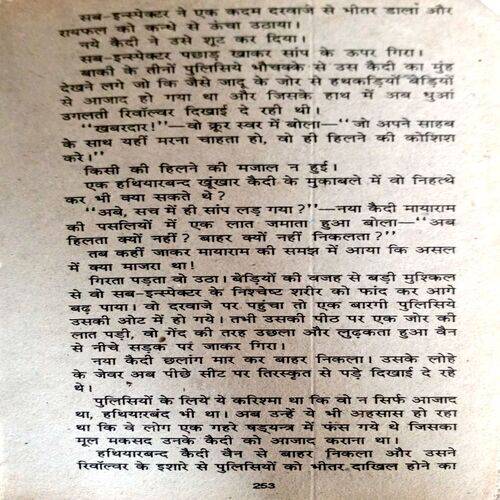 सब-इन्स्पेक्टर ने एक कदम दरवाजे से भीतर डाला और
रायफल को कन्धे से ऊंचा उठाया।
नये कैदी ने उसे शूट कर दिया।
सब-इन्स्पेक्टर पछाड़ खाकर सांप के ऊपर गिरा।
बाकी के तीनों पुलिसिये भौचक्के से उस कैदी का मुंह
देखने लगे जो कि जैसे जादू के जोर से हथकड़ियों बेड़ियों
से आजाद हो गया था और जिसके हाथ में अब धुआं
उगलती रिवॉल्वर दिखाई दे रही थी।
“खबरदार!”—वो क्रूर स्वर में बोला—“जो अपने साहब
के साथ यहीं मरना चाहता हो, वो ही हिलने की कोशिश
करे।”
किसी की हिलने की मजाल न हुई।
एक हथियारबन्द खूंखार कैदी के मुकाबले में वो निहत्थे
कर भी क्या सकते थे?
“अबे, सच में ही सांप लड़ गया?”—नया कैदी मायाराम
की पसलियों में एक लात जमाता हुआ बोला—“अब
हिलता क्यों नहीं? बाहर क्यों नहीं निकलता?”
तब कहीं जाकर मायाराम की समझ में आया कि असल
में क्या माजरा था!
गिरता पड़ता वो उठा। बेड़ियों की वजह से बड़ी मुश्किल
से वो सब-इन्स्पेक्टर के निश्चेष्ट शरीर को फांद कर आगे
बढ़ पाया। वो दरवाजे पर पहुंचा तो एक बारगी पुलिसिये
उसकी ओट में हो गये। तभी उसकी पीठ पर एक जोर की
लात पड़ी, वो गेंद की तरह उछला और लुढ़कता हुआ वैन
से नीचे सड़क पर जाकर गिरा।
नया कैदी छलांग मार कर बाहर निकला। उसके लोहे
के जेवर अब पीछे सीट पर तिरस्कृत से पड़े दिखाई दे रहे
थे।
पुलिसियों के लिये ये करिश्मा था कि वो न सिर्फ आजाद
था, हथियारबंद भी था। अब उन्हें ये भी अहसास हो रहा
था कि वे लोग एक गहरे षड्यन्त्र में फंस गये थे जिसका
मूल मकसद उनके कैदी को आजाद कराना था।
हथियारबन्द कैदी वैन से बाहर निकला और उसने
रिवॉल्वर के इशारे से पुलिसियों को भीतर दाखिल होने का
253